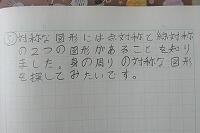 ①対称な図形には点対称と線対称
の2つの図形があることを知り
ました。身の周りの対称な図形
を探してみたいです。